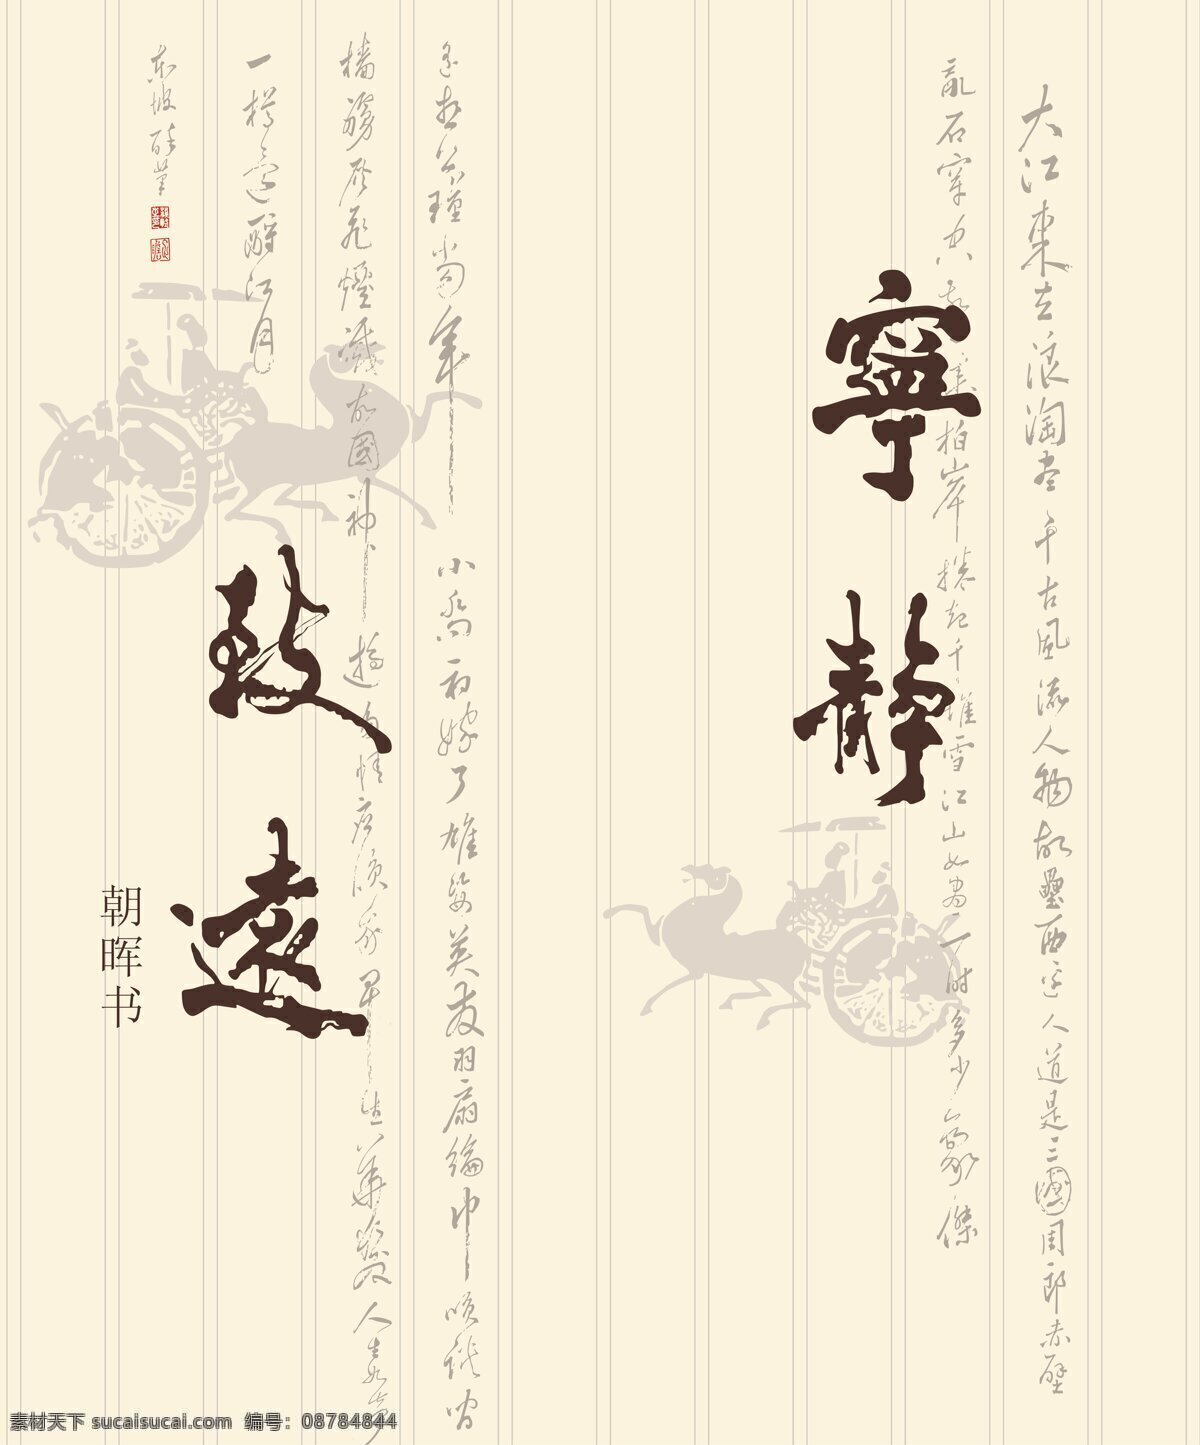 大江東去浪淘盡千古風流人物故壘西邊人道是三國周郎赤壁
亂石穿空驚濤拍岸捲起千堆雪江山如畫一時多少豪傑
寧靜
遙想公瑾當年小喬初嫁了雄姿英發羽扇綸巾笑談間
檣艣灰飛煙滅故國神遊多情應須笑我早生華髮人生如夢
一樽還酹江月
東坡醉筆
致遠
朝晖书
素材天下 sucaisucai.com 编号：08784844